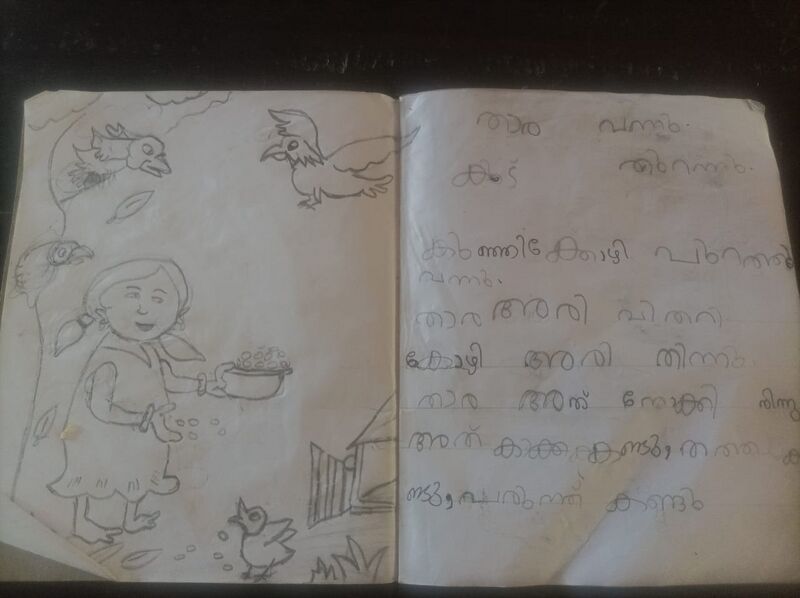 താര വന്നു.
കൂട് തുറന്നു.
കുഞ്ഞിക്കോഴി പുറത്തു
വന്നു.
താര അരി വിതറി
കോഴി അരി തിന്നു.
താര അത് നോക്കി നിന്നു
അത് കാക്ക കണ്ടു, തത്ത ക
ണ്ടു, പരുന്ത് കണ്ടു